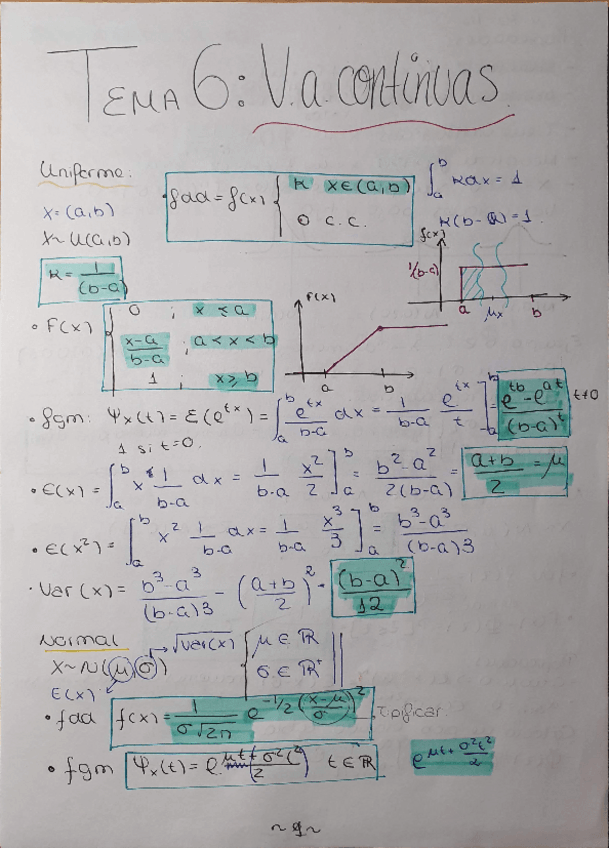 TEMA 6: V.a. continuas.
Uniforme:
X=(a,b)
X~U(a,b)
fdd = f(x) { K x∈(a,b)
0 c.c.
∫_a^b K dx = 1
K(b-a)=1.
K = 1/(b-a)
f(x)
1/(b-a)
a μx b
• F(x) { 0 ; x ≤ a
x-a/b-a ; a < x < b
1 ; x ≥ b
F(x)
a b
• fgm: Ψx(t) = E(e^tx) = ∫_a^b e^tx/b-a dx = 1/b-a e^tx/t ]_a^b = e^tb - e^at/(b-a)t t≠0
1 si t=0.
• E(x) = ∫_a^b x 1/b-a dx = 1/b-a x²/2 ]_a^b = b²-a²/2(b-a) = a+b/2 = μ
• E(x²) = ∫_a^b x² 1/b-a dx = 1/b-a x³/3 ]_a^b = b³-a³/(b-a)3
• Var(x) = b³-a³/(b-a)3 - (a+b/2)² = (b-a)²/12
Normal
X~N(μ,σ) → √Var(x) { μ ∈ ℝ
σ ∈ ℝ⁺
E(x)
• fdd f(x) = 1/σ√2π e^-1/2(x-μ/σ)² tipificar
• fgm Ψx(t) = e^μt + σ²t²/2 t ∈ ℝ e^μt+σ²t²/2
~ 1 ~